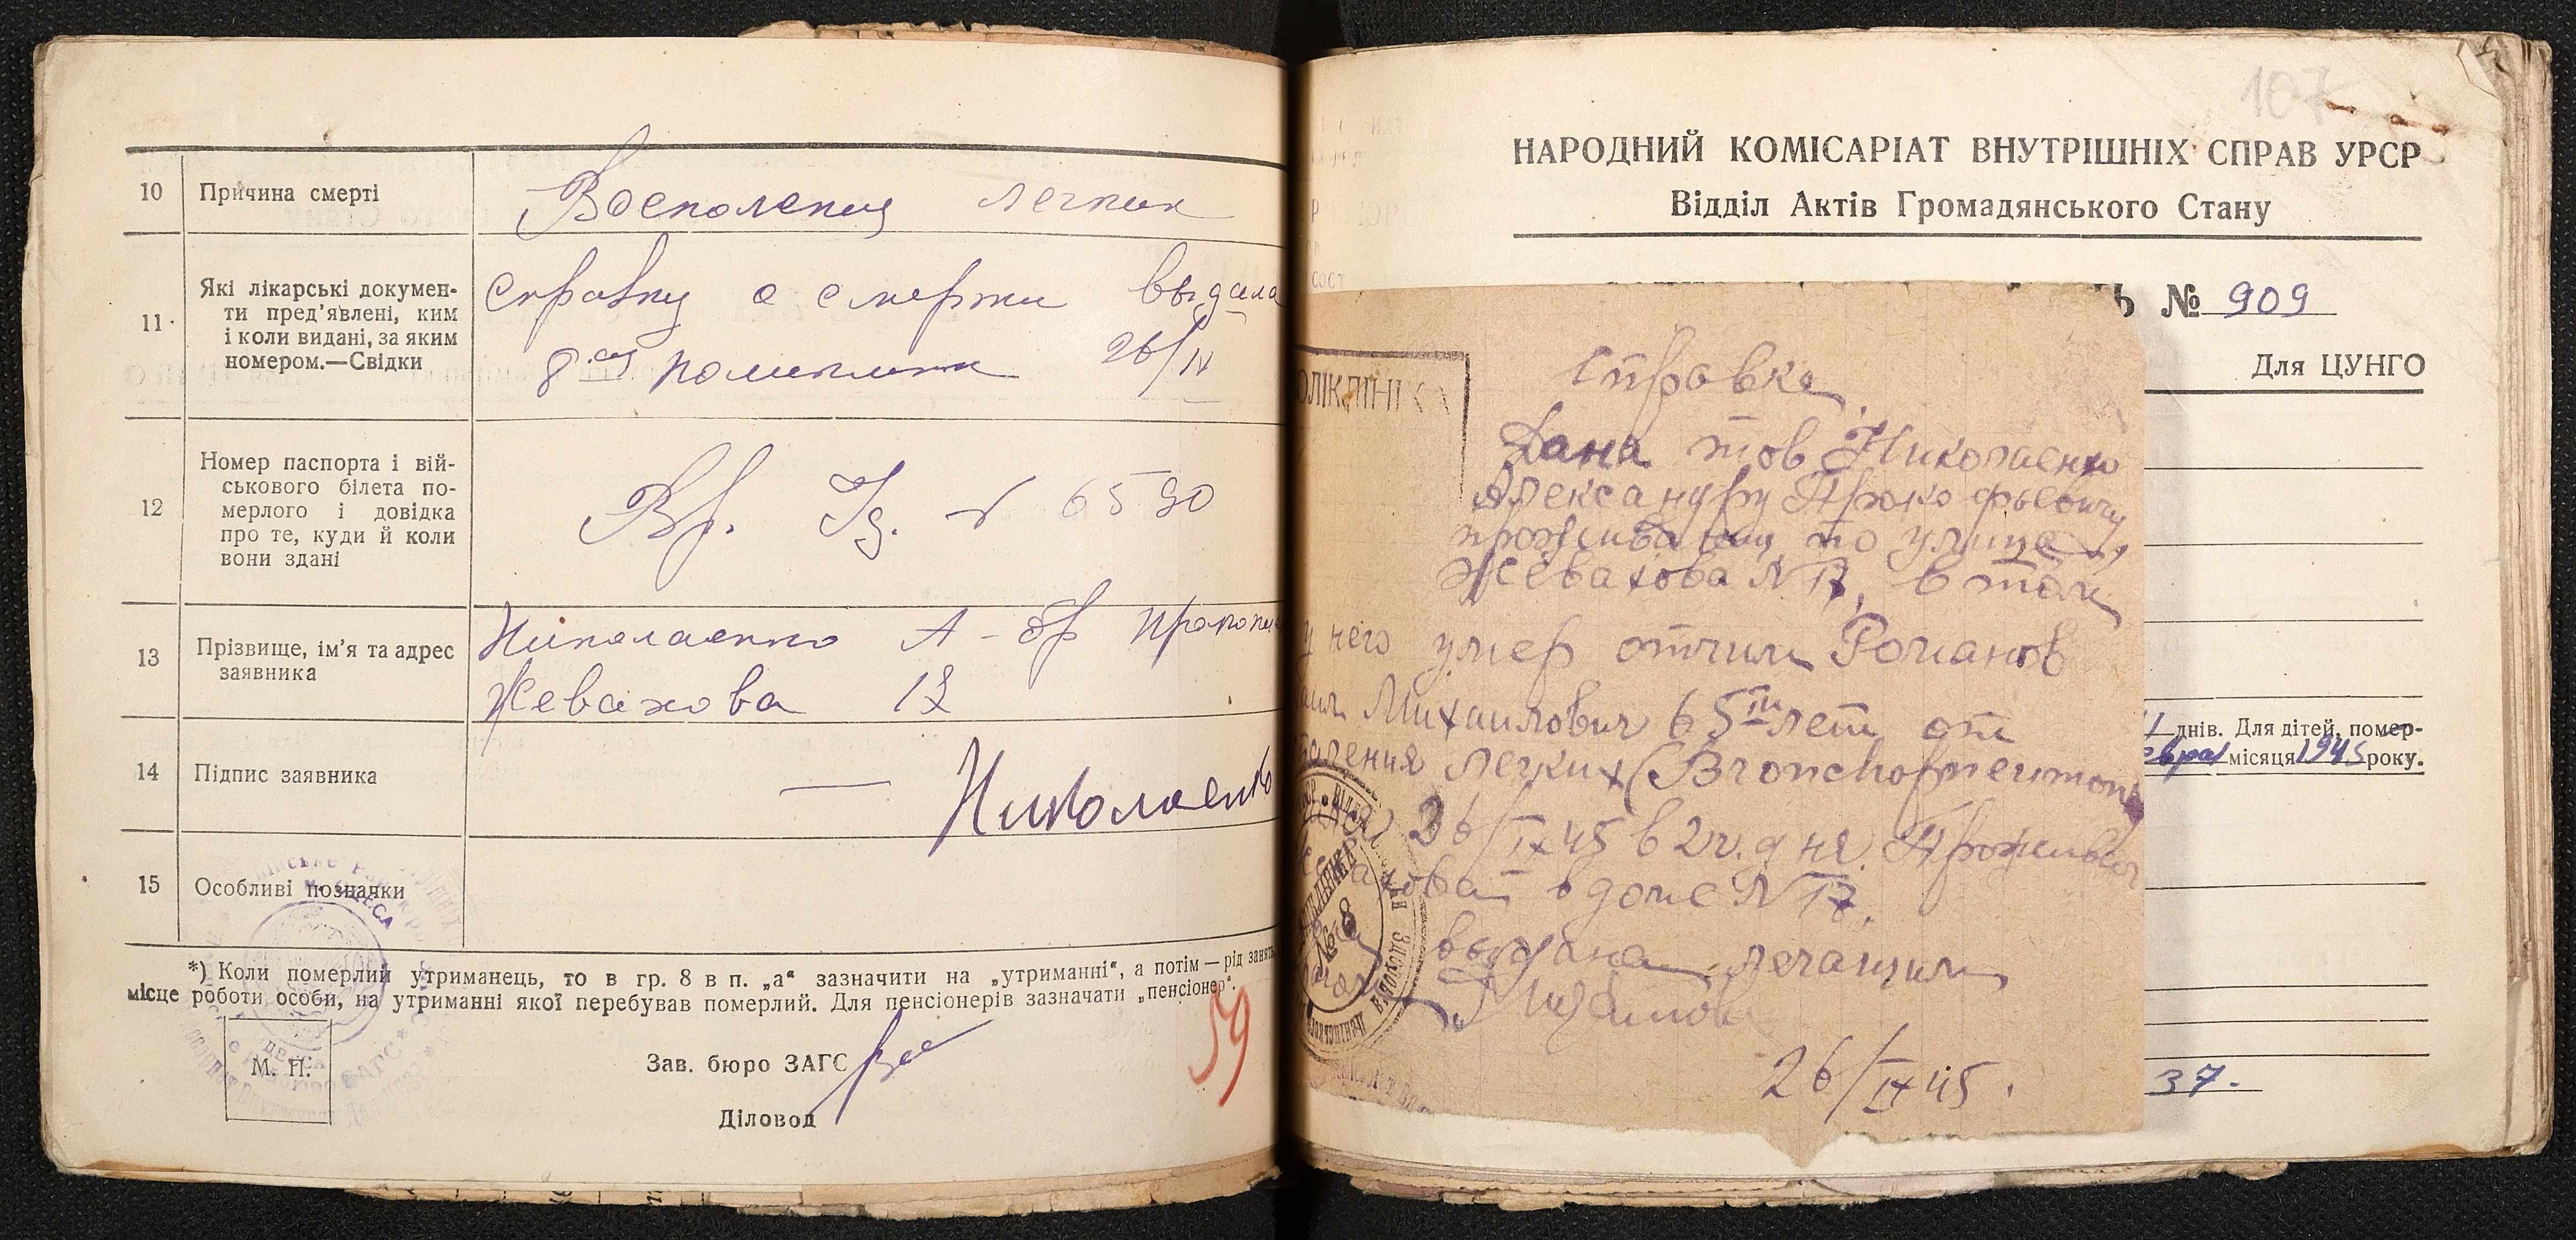 10 Причина смерті
Воспаления легких
11 Які лікарські докумен-
ти пред'явлені, ким
і коли видані, за яким
номером.—Свідки
Справку о смерти выдала
8ая 26/IV
12 Номер паспорта і вій-
ськового білета по-
мерлого і довідка
про те, куди й коли
вони здані
Вр. Уд. № 6590
13 Прізвище, ім'я та адрес
заявника
Николаенко
Жевахова 17
14 Підпис заявника
Николаенко
15 Особливі позначки
*) Коли померлий утриманець, то в гр. 8 в п. „а“ зазначити на „утриманні“, а потім — рід занять,
місце роботи особи, на утриманні якої перебував померлий. Для пенсіонерів зазначати „пенсіонер“.
М. П.
Зав. бюро ЗАГС
Діловод
59
107
НАРОДНИЙ КОМІСАРІАТ ВНУТРІШНІХ СПРАВ УРСР
Відділ Актів Громадянського Стану
№ 909
Для ЦУНГО
днів. Для дітей, помер-
місяця 1945 року.
37.
ОЛІКЛІНІКА
Справка
Дана тов Николаенко
Александру Прокофьевичу
по улице
Жевахова N 17, в том
у него умер отчим Романов
Михаилович 65ти лет от
легких (Bronchopneumon
26/IV 45 в 2ч. дня.
в доме N 17.
выдана лечащим
26/IV 45.
№ 8